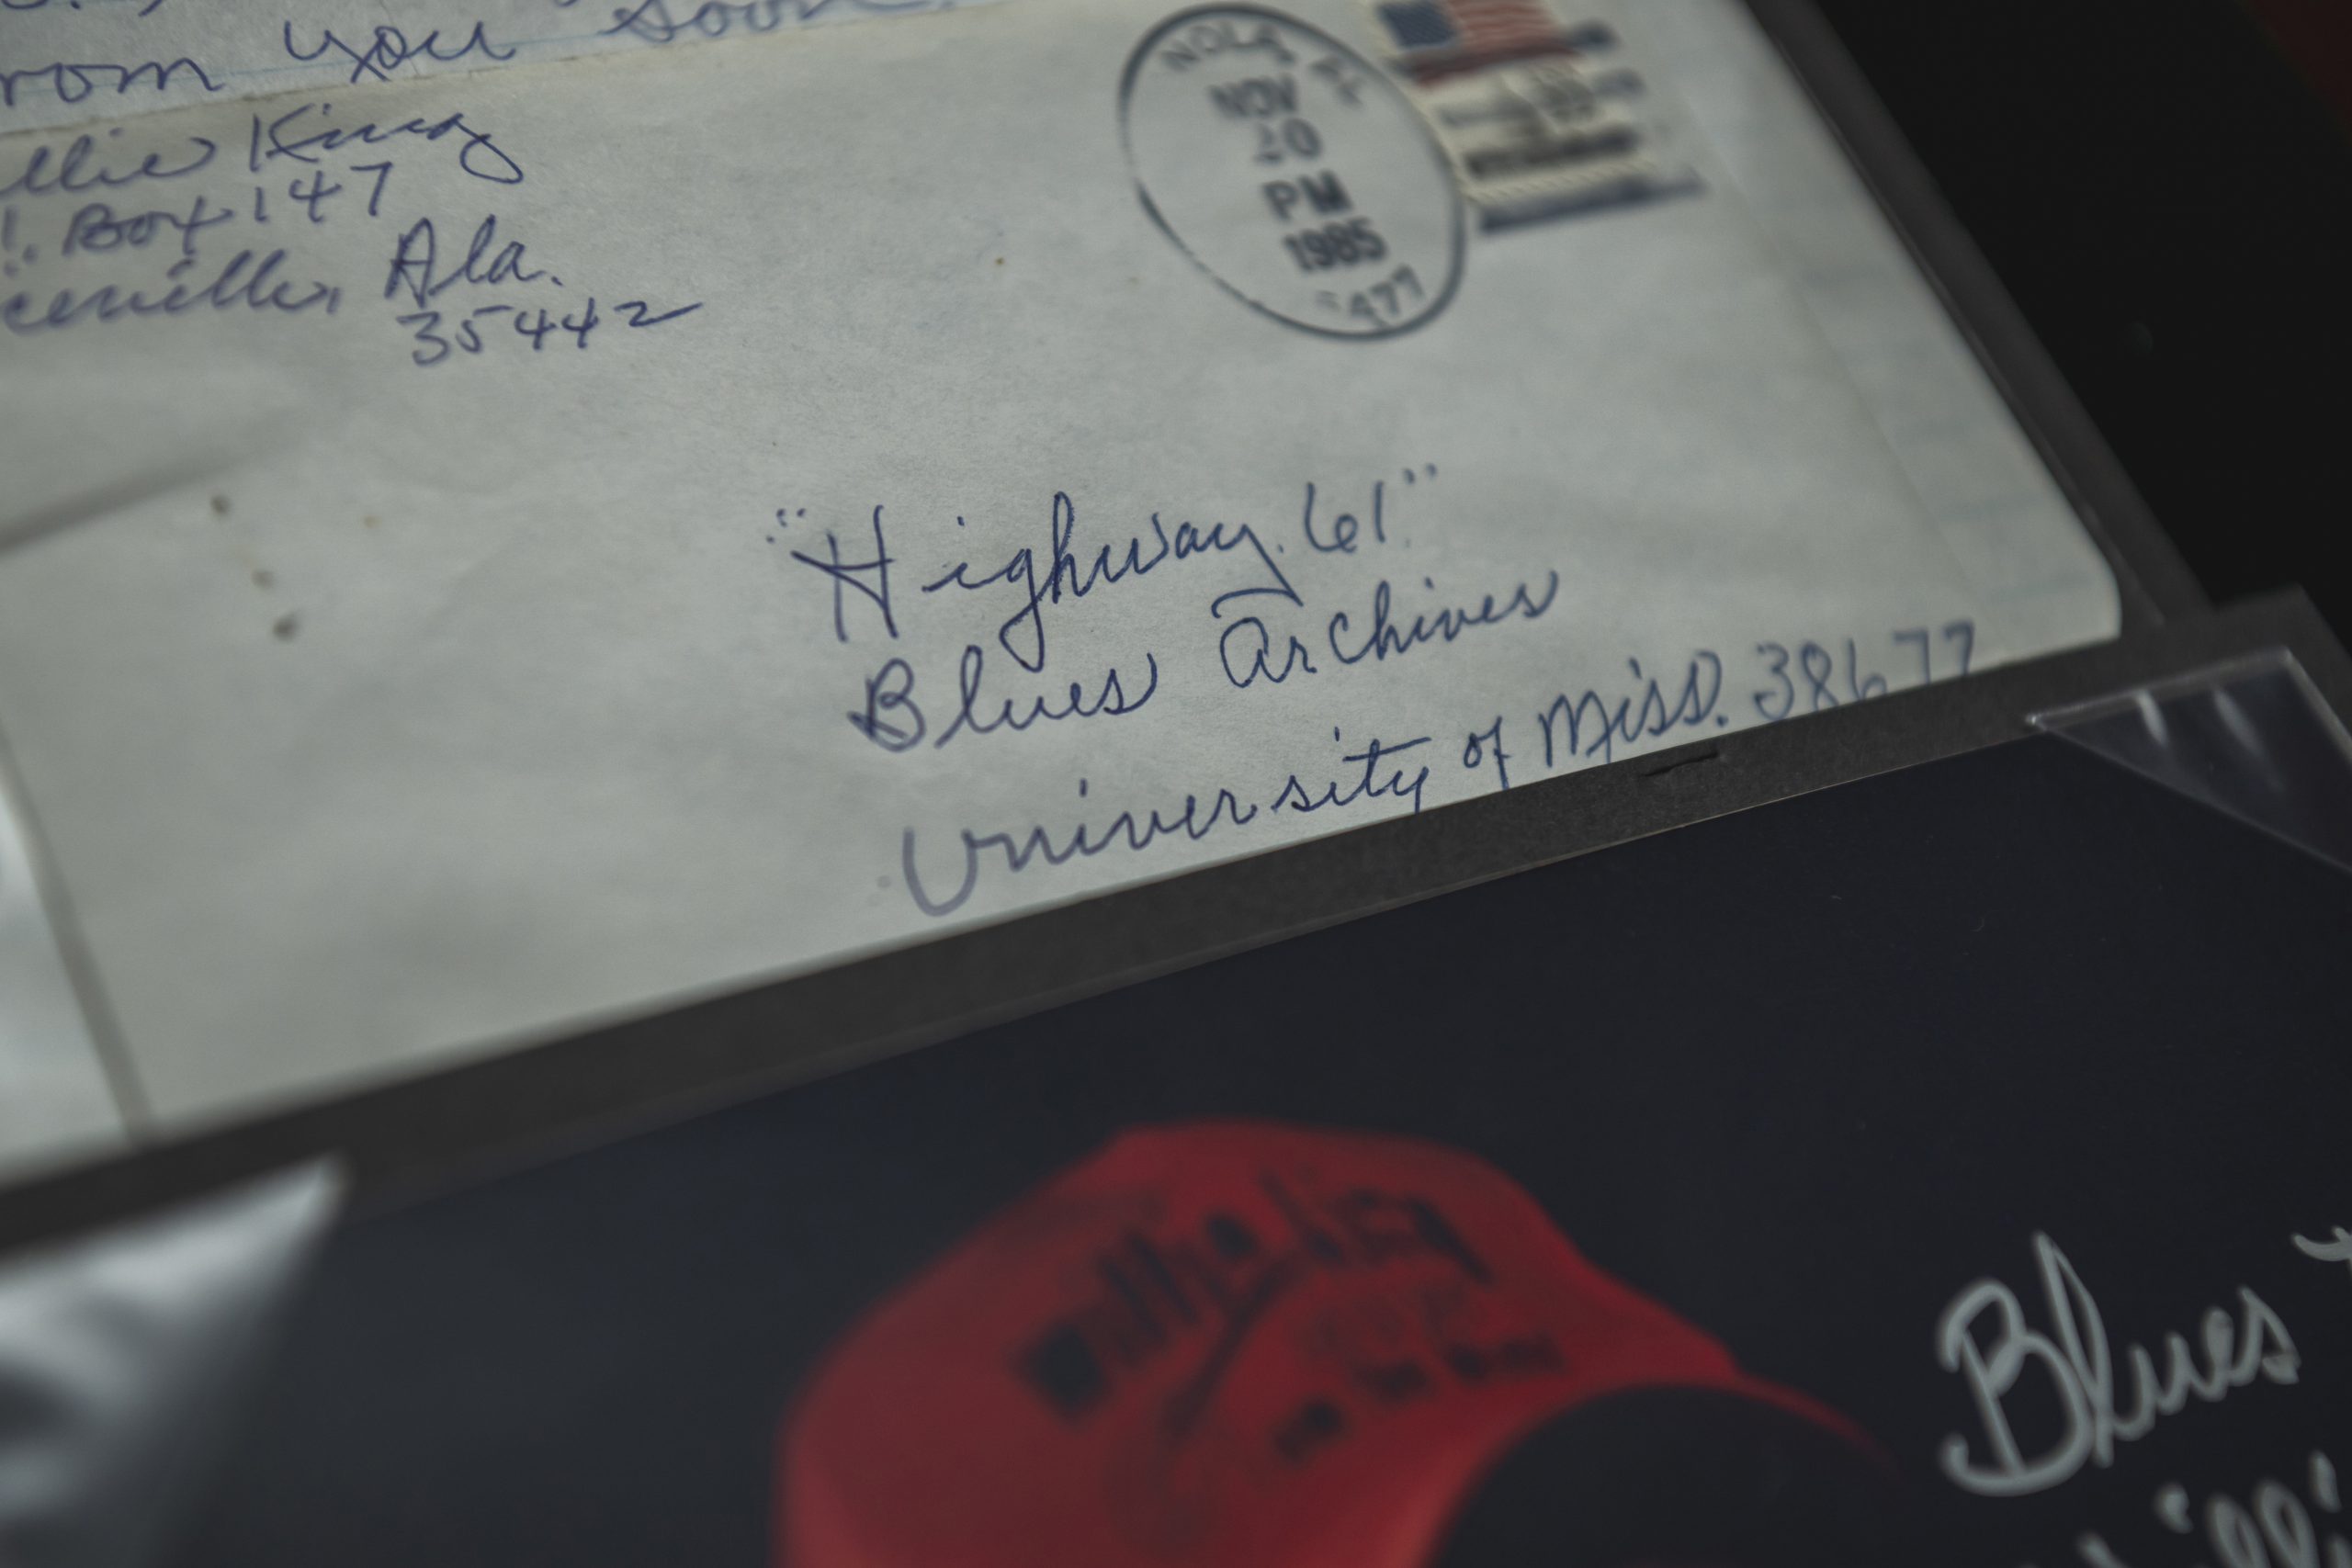 rom you soon.
llie King
. Box 147
ceville, Ala.
35442
NOLA PL
NOV
20
PM
1985
477
"Highway. 61"
Blues Archives
University of Miss. 38677
Blues